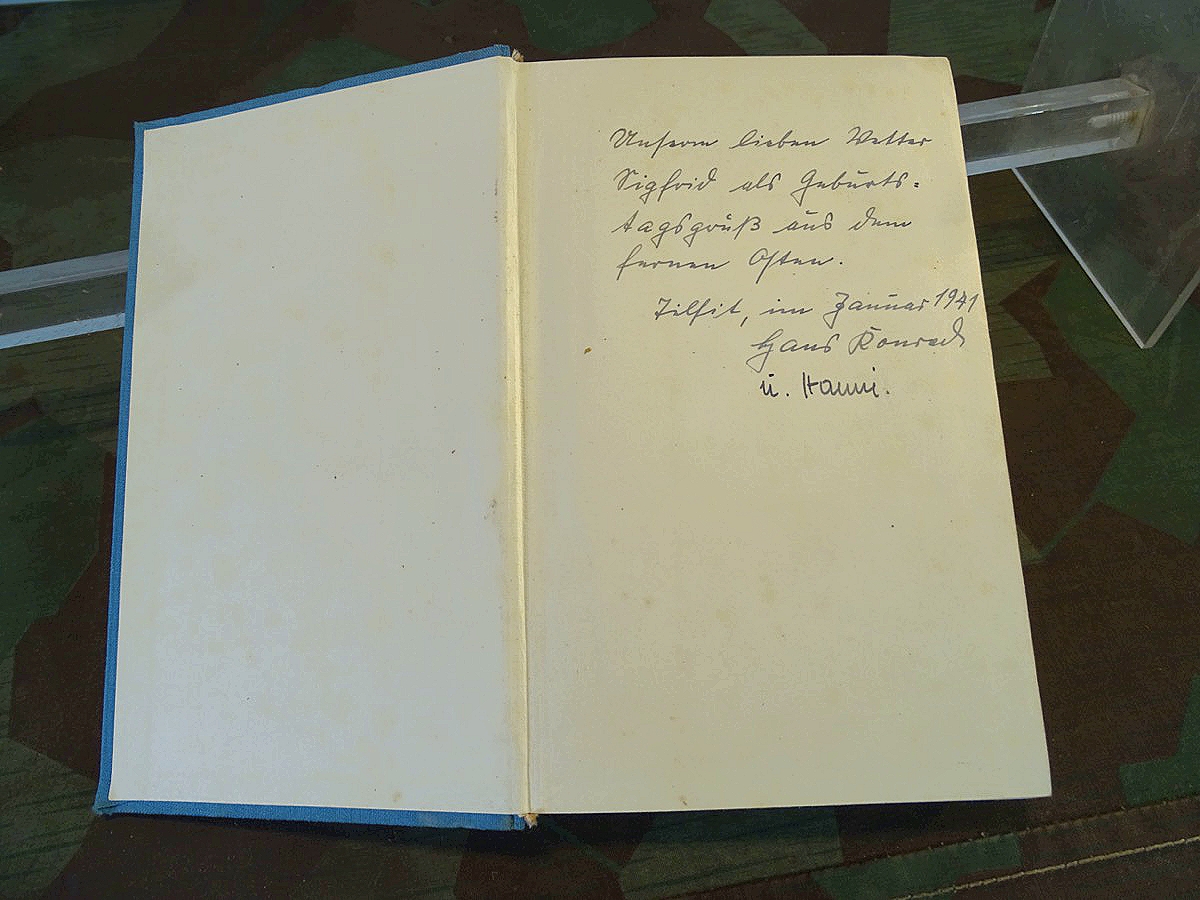 Unserm lieben Vetter
Sigfrid als Geburts=
tagsgruß aus dem
fernen Osten.
Tilsit, im Januar 1941
Hans Konrad
u. Hanni.